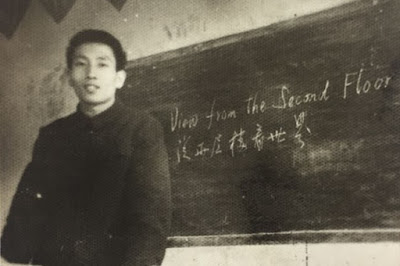 View from the Second Floor
楼看世界